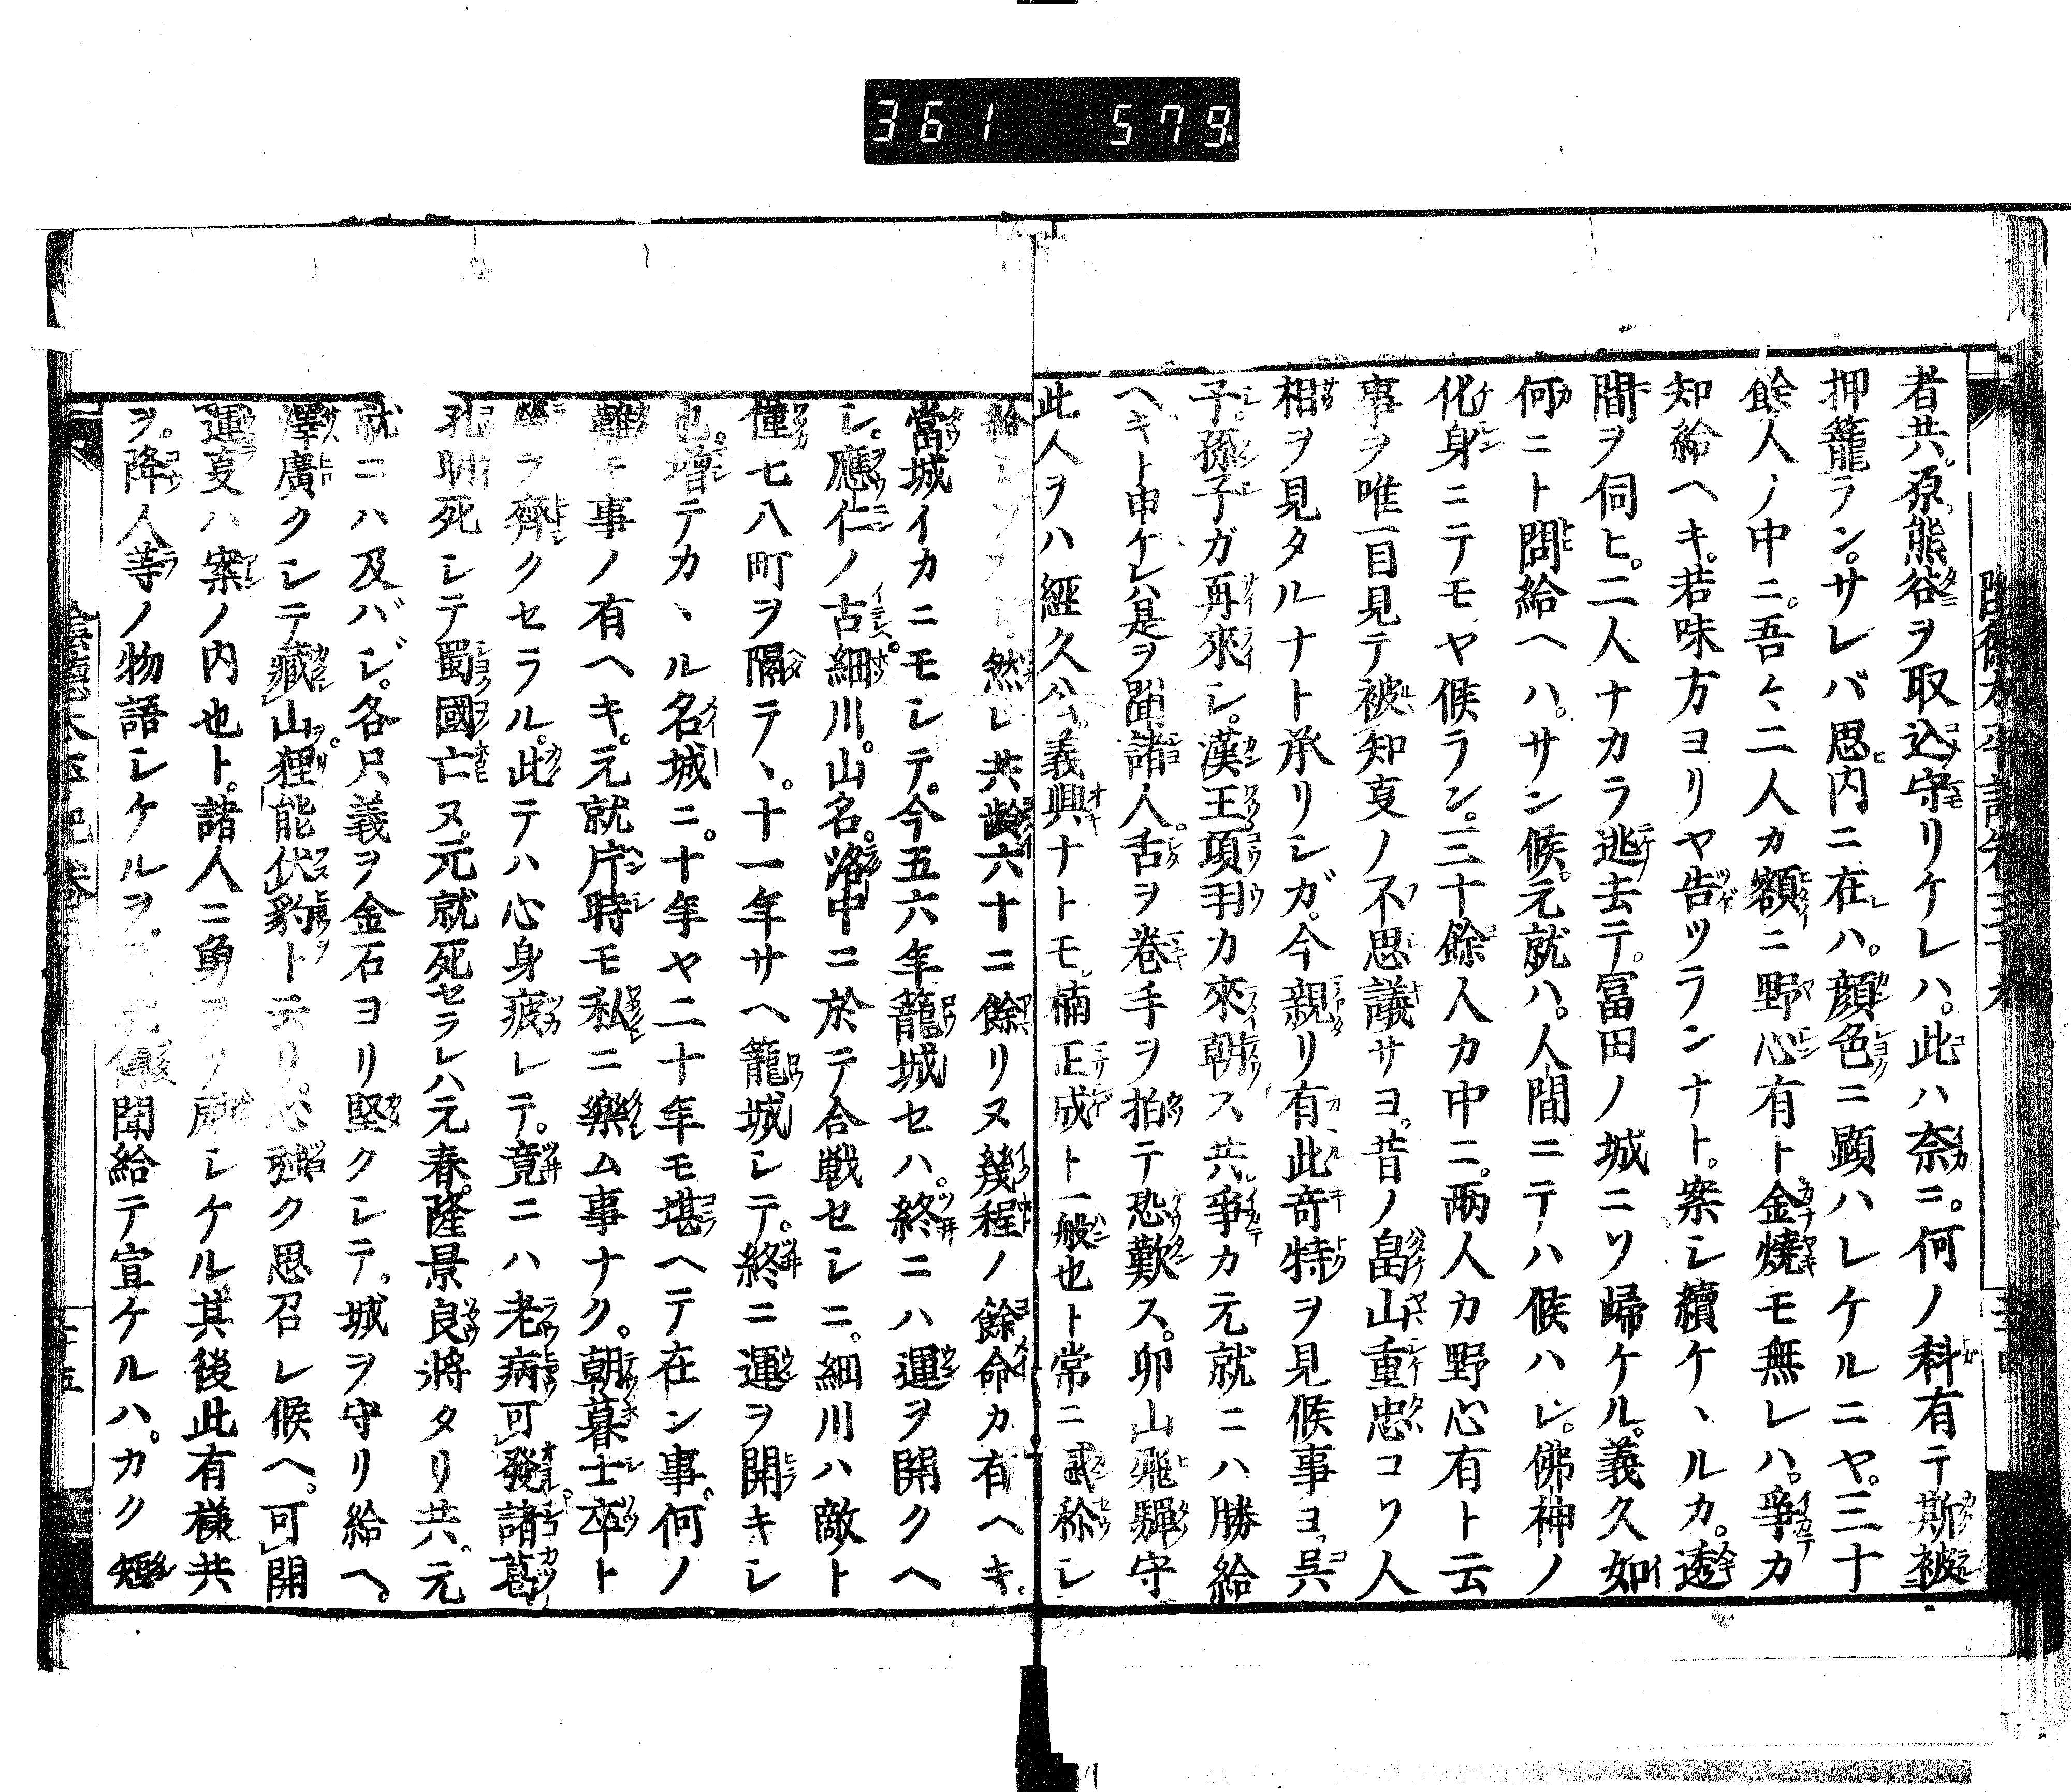 361 579
者共原熊谷ヲ取込守リケレハ。此ハ奈ニ。何ノ科有テ斯被
押籠ラン。サレバ思内ニ在ハ。顔色ニ顕ハレケルニヤ。三十
餘人ノ中ニ。吾々二人カ額ニ野心有ト金燒モ無レハ。爭カ
知給ヘキ。若味方ヨリヤ告ツランナト。案シ續ケヽルカ。透
間ヲ伺ヒ。二人ナカラ逃去テ。富田ノ城ニソ歸ケル。義久如
何ニト問給ヘハ。サン候。元就ハ。人間ニテハ候ハシ。佛神ノ
化身ニテモヤ候ラン。三十餘人カ中ニ。兩人カ野心有ト云
事ヲ唯一目見テ被知叓ノ不思議サヨ。昔ノ畠山重忠コソ人
相ヲ見タルナト承リシガ。今親リ有此奇特ヲ見候事ヨ。呉
子。孫子ガ再來シ。漢王項羽カ來朝ス共。爭カ元就ニハ勝給
ヘキト申ケレハ是ヲ聞諸人。舌ヲ卷手ヲ拍テ恐歎ス。卯山飛驒守
此人ヲハ經久公。義興ナトモ。楠正成ト一般也ト常ニ感稱シ
然レ共齢六十ニ餘リヌ幾程ノ餘命カ有ヘキ。
當城イカニモシテ。今五六年籠城セハ。終ニハ運ヲ開クヘ
シ。應仁ノ古。細川。山名。洛中ニ於テ合戰セシニ。細川ハ敵ト
僅七八町ヲ隔テヽ。十一年サヘ籠城シテ。終ニ運ヲ開キシ
也。增テカヽル名城ニ。十年ヤ二十年モ堪ヘテ在ン事。何ノ
難キ事ノ有ヘキ。元就片時モ私ニ樂ム事ナク。朝暮士卒ト
ヲ齊クセラル。此テハ心身疲レテ。竟ニハ老病可發。諸葛
孔明死シテ蜀國亡ヌ。元就死セラレハ元春。隆景良將タリ共。元
就ニハ及バジ。各只義ヲ金石ヨリ堅クシテ。城ヲ守リ給ヘ。
澤廣クシテ藏山狸。能伏豹ト云リ。心強ク思召レ候ヘ。可開
運叓ハ案ノ内也ト。諸人ニ勇ヲソ屬シケル。其後此有樣共
ヲ。降人等ノ物語シケルヲ。元就傳聞給テ宣ケルハ。カク